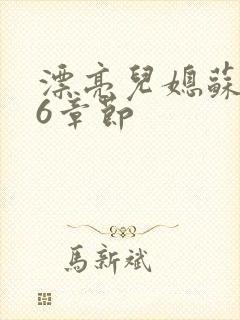 漂亮兒媳蘇
6章節
馬新斌